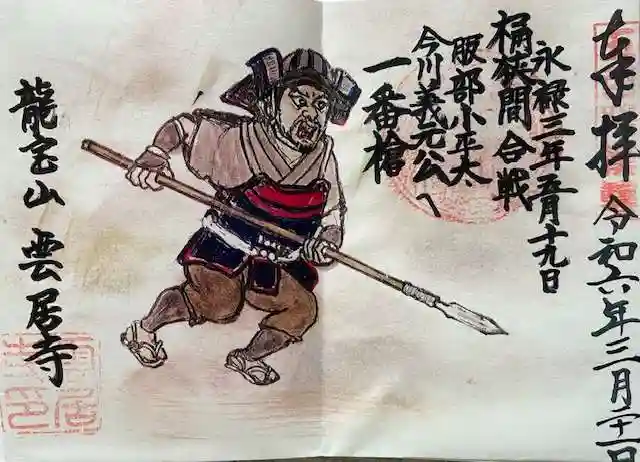 奉拝 令和六年三月二十一日
永禄三年五月十九日
桶狭間合戦
服部小平太
今川義元公へ
一番槍
龍宝山 雲居寺